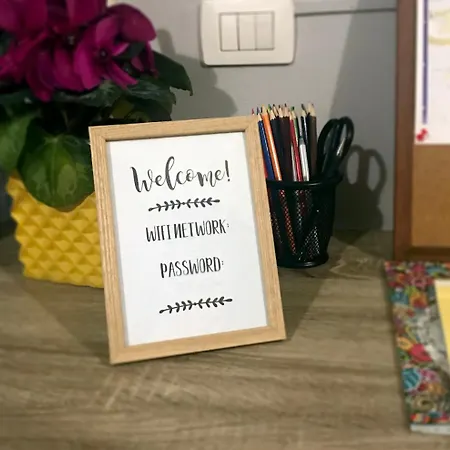 Welcome!
WIFI NETWORK:
PASSWORD: